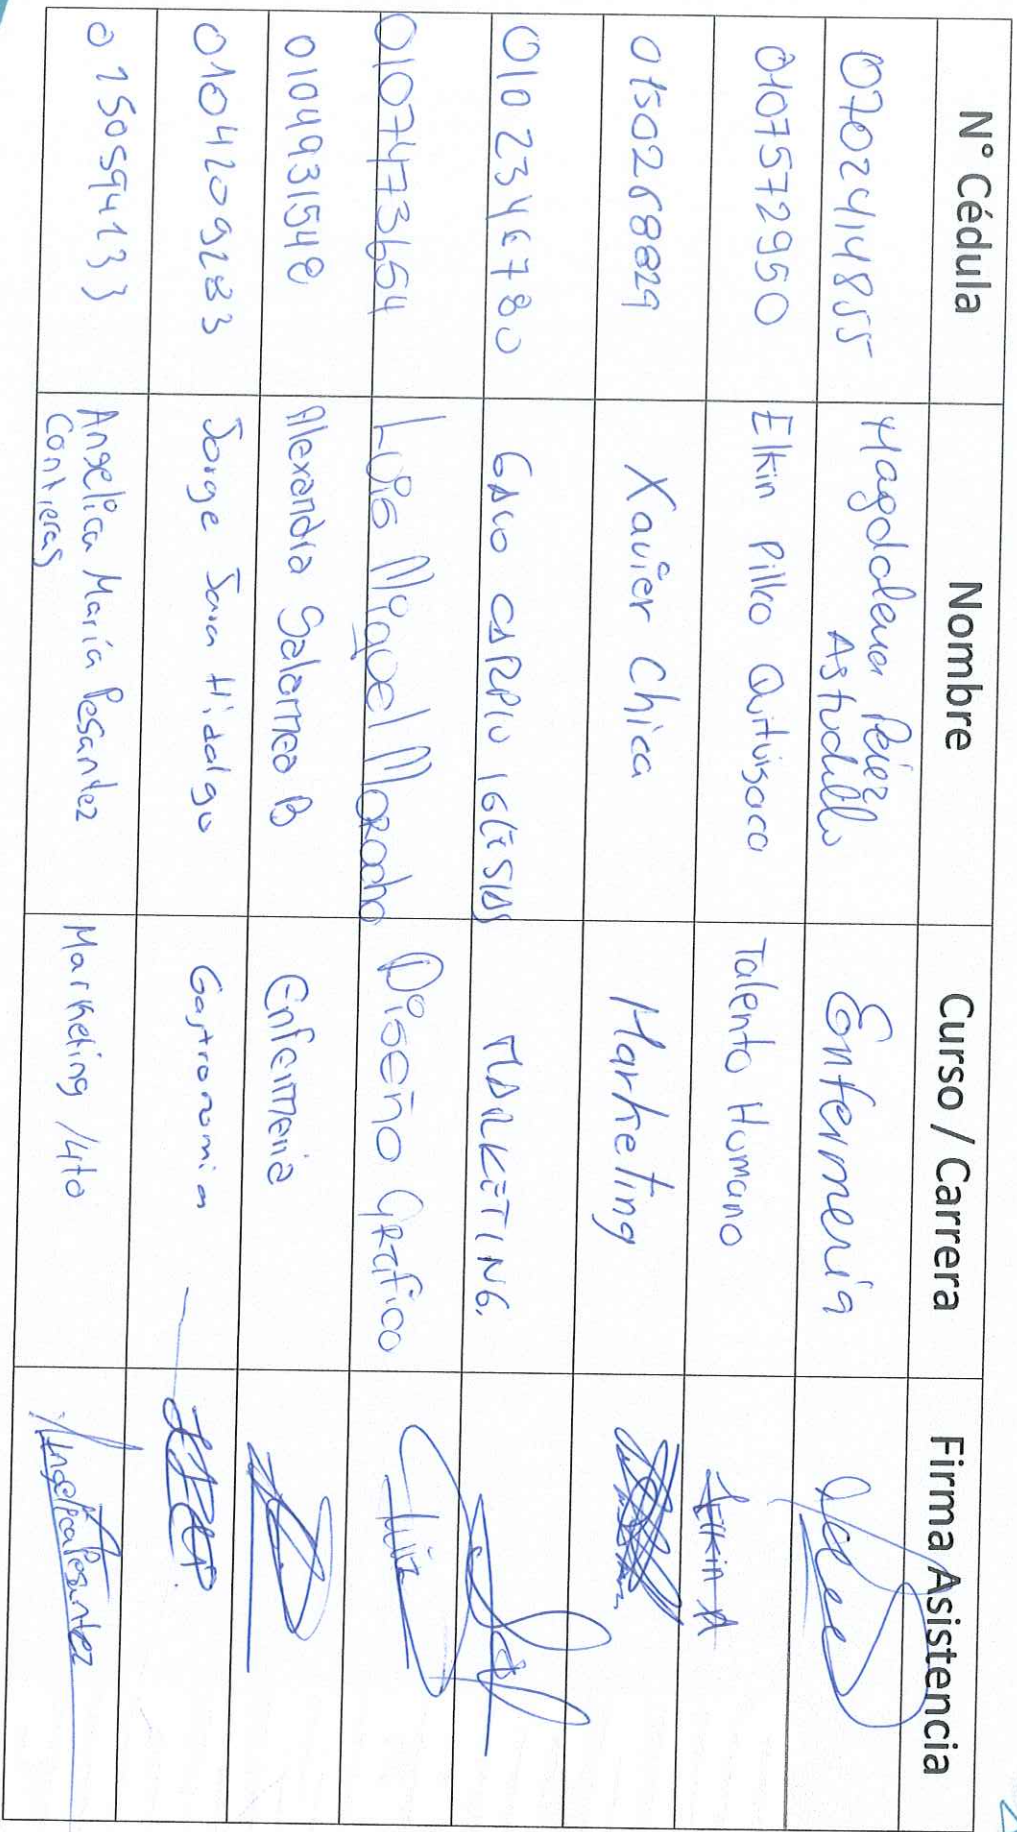 N° Cédula Nombre Curso / Carrera Firma Asistencia
0702414855 Magdalena Pérez Astudillo Enfermería
0107572950 Elkin Pillco Quituisaca Talento Humano Elkin
0150268829 Xavier Chica Marketing
GALO CARPIO IGLESIAS MARKETING.
0107473654 Luis Miguel Morocho Diseño Gráfico Luis
0104931548 Alexandra Salamea B Enfermeria
0104209283 Jorge Jara Hidalgo Gastronomia
0150594133 Angelica María Pesantez Contreras Marketing /4to Angelica Pesantez